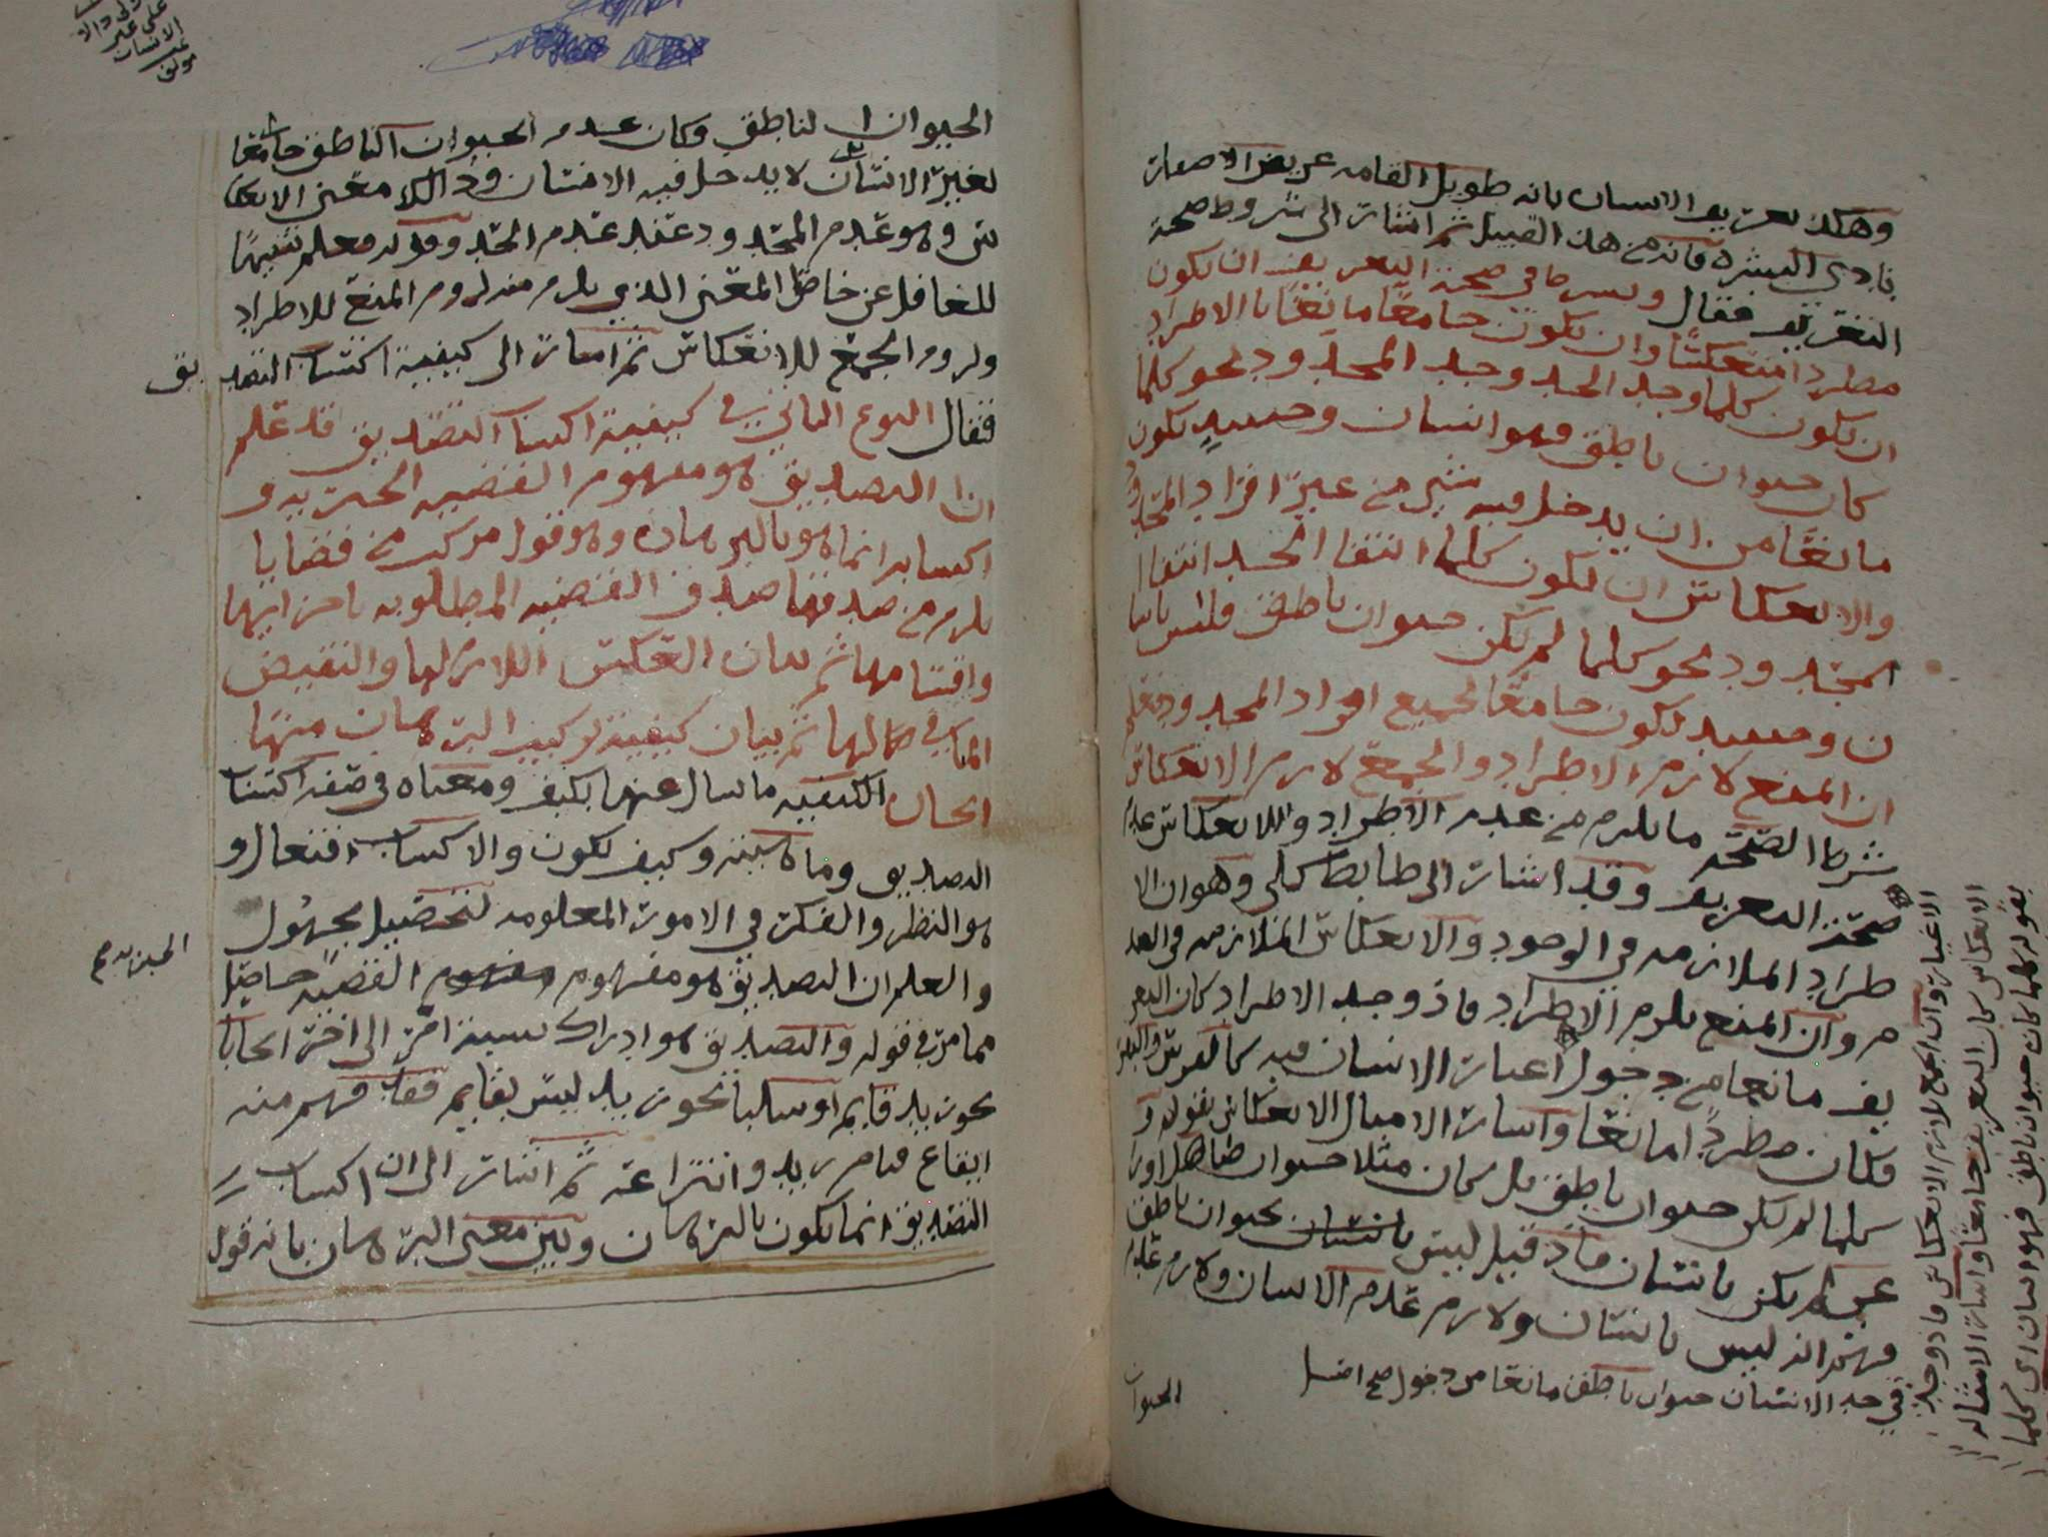 وهكذا تعريف الانسان بانه طويل القامه عريض الاصفار
بادي البشرة فانه من هذا القبيل ثم اشار الى شروط صحة
التعريف فقال وشرطا في صحة التعريف ان يكون
مطردا منعكسا وان يكون جامعا مانعا بالاطراد
ان يكون كلما وجد الحد وجد المحدود نحو كلما
كان حيوان ناطق فهو انسان وحينيذ يكون
مانعا من ان يدخل فيه شي من غير افراد المحدود
والانعكاس ان يكون كلما انتفا الحد انتفا ا
لمحدود نحو كلما لم يكن حيوان ناطق فليس بانسا
ن وحينيذ يكون جامعا لجميع افراد المحدود فعلم
ان المنع لازم الاطراد والجمع لازم الانعكاس
شرط الصحة ما يلزم من عدم الاطراد والانعكاس عدم
صحة التعريف وقد اشار الى ضابط كلي وهو ان الا
طراد الملازمه في الوجود والانعكاس الملازمه في العد
م وان المنع يلزم الاطراد فاذ وجد الاطراد كان التعر
يف مانعا من دخول اغيار الانسان فيه كالفرس والبغل
فكان مطردا مانعا واشار الامثال الانعكاس بقوله و
كلما لم يكن حيوان ناطق بل كان مثلا حيوان صاهل او
لم يكن بانسان فاذ قيل ليس بانسان بحيوان ناطق
ليس بانسان ولازم عدم الانسان ولازم عدم
في حد الانسان حيوان ناطق مانعا من دخول
الحيوان
الاغيار وان الجمع لازم الانعكاس فاذ وجد
الانعكاس كان التعريف جامعا واشار الامثاله
بقوله كلما كان حيوان ناطق فهو انسان اي كلما
الحيوان الناطق وكان عدم الحيوان الناطق جامعا
لغير الانسان لا يدخل فيه الانسان وذالك معنى الانعكا
س وهو عدم المحدود عند عدم الحد وقوله فعلم تنبيها
للغافل عن حاصل المعنى الذي يلزم منه لزوم المنع للاطراد
ولزوم الجمع للانعكاس ثم اشار الى كيفية اكتساب التصديق
فقال النوع الثاني في كيفية اكتساب التصديق قد علم
ان التصديق هو مفهوم القضيه الخبريه و
اكتسابه انما هو بالبرهان وهو قول مركب من قضايا
يلزم من صدقها صدق القضيه المطلوبه باجزايها
واقسامها ثم بيان العكس اللازم لها والنقيض
المنافي لها ثم بيان كيفية تركيب البرهان منها
الكيفيه ما يسال عنها بكيف ومعناه في صفه اكتساب
التصديق وماهيته وكيف يكون والاكتساب افتعال و
هو النظر والفكر في الامور المعلومه لتحصيل مجهول
والعلم ان التصديق هو مفهوم القضيه حاصل
الخبريه
مما مر في قوله والتصديق هو ادراك نسبة امر الى اخر ايجابا
نحو زيد قايم او سلبا نحو زيد ليس بقايم فقد فهم منه
ايقاع قيام زيد وانتزاعه ثم اشار الى ان اكتساب
التصديق انما يكون بالبرهان وبين معنى البرهان بانه قول